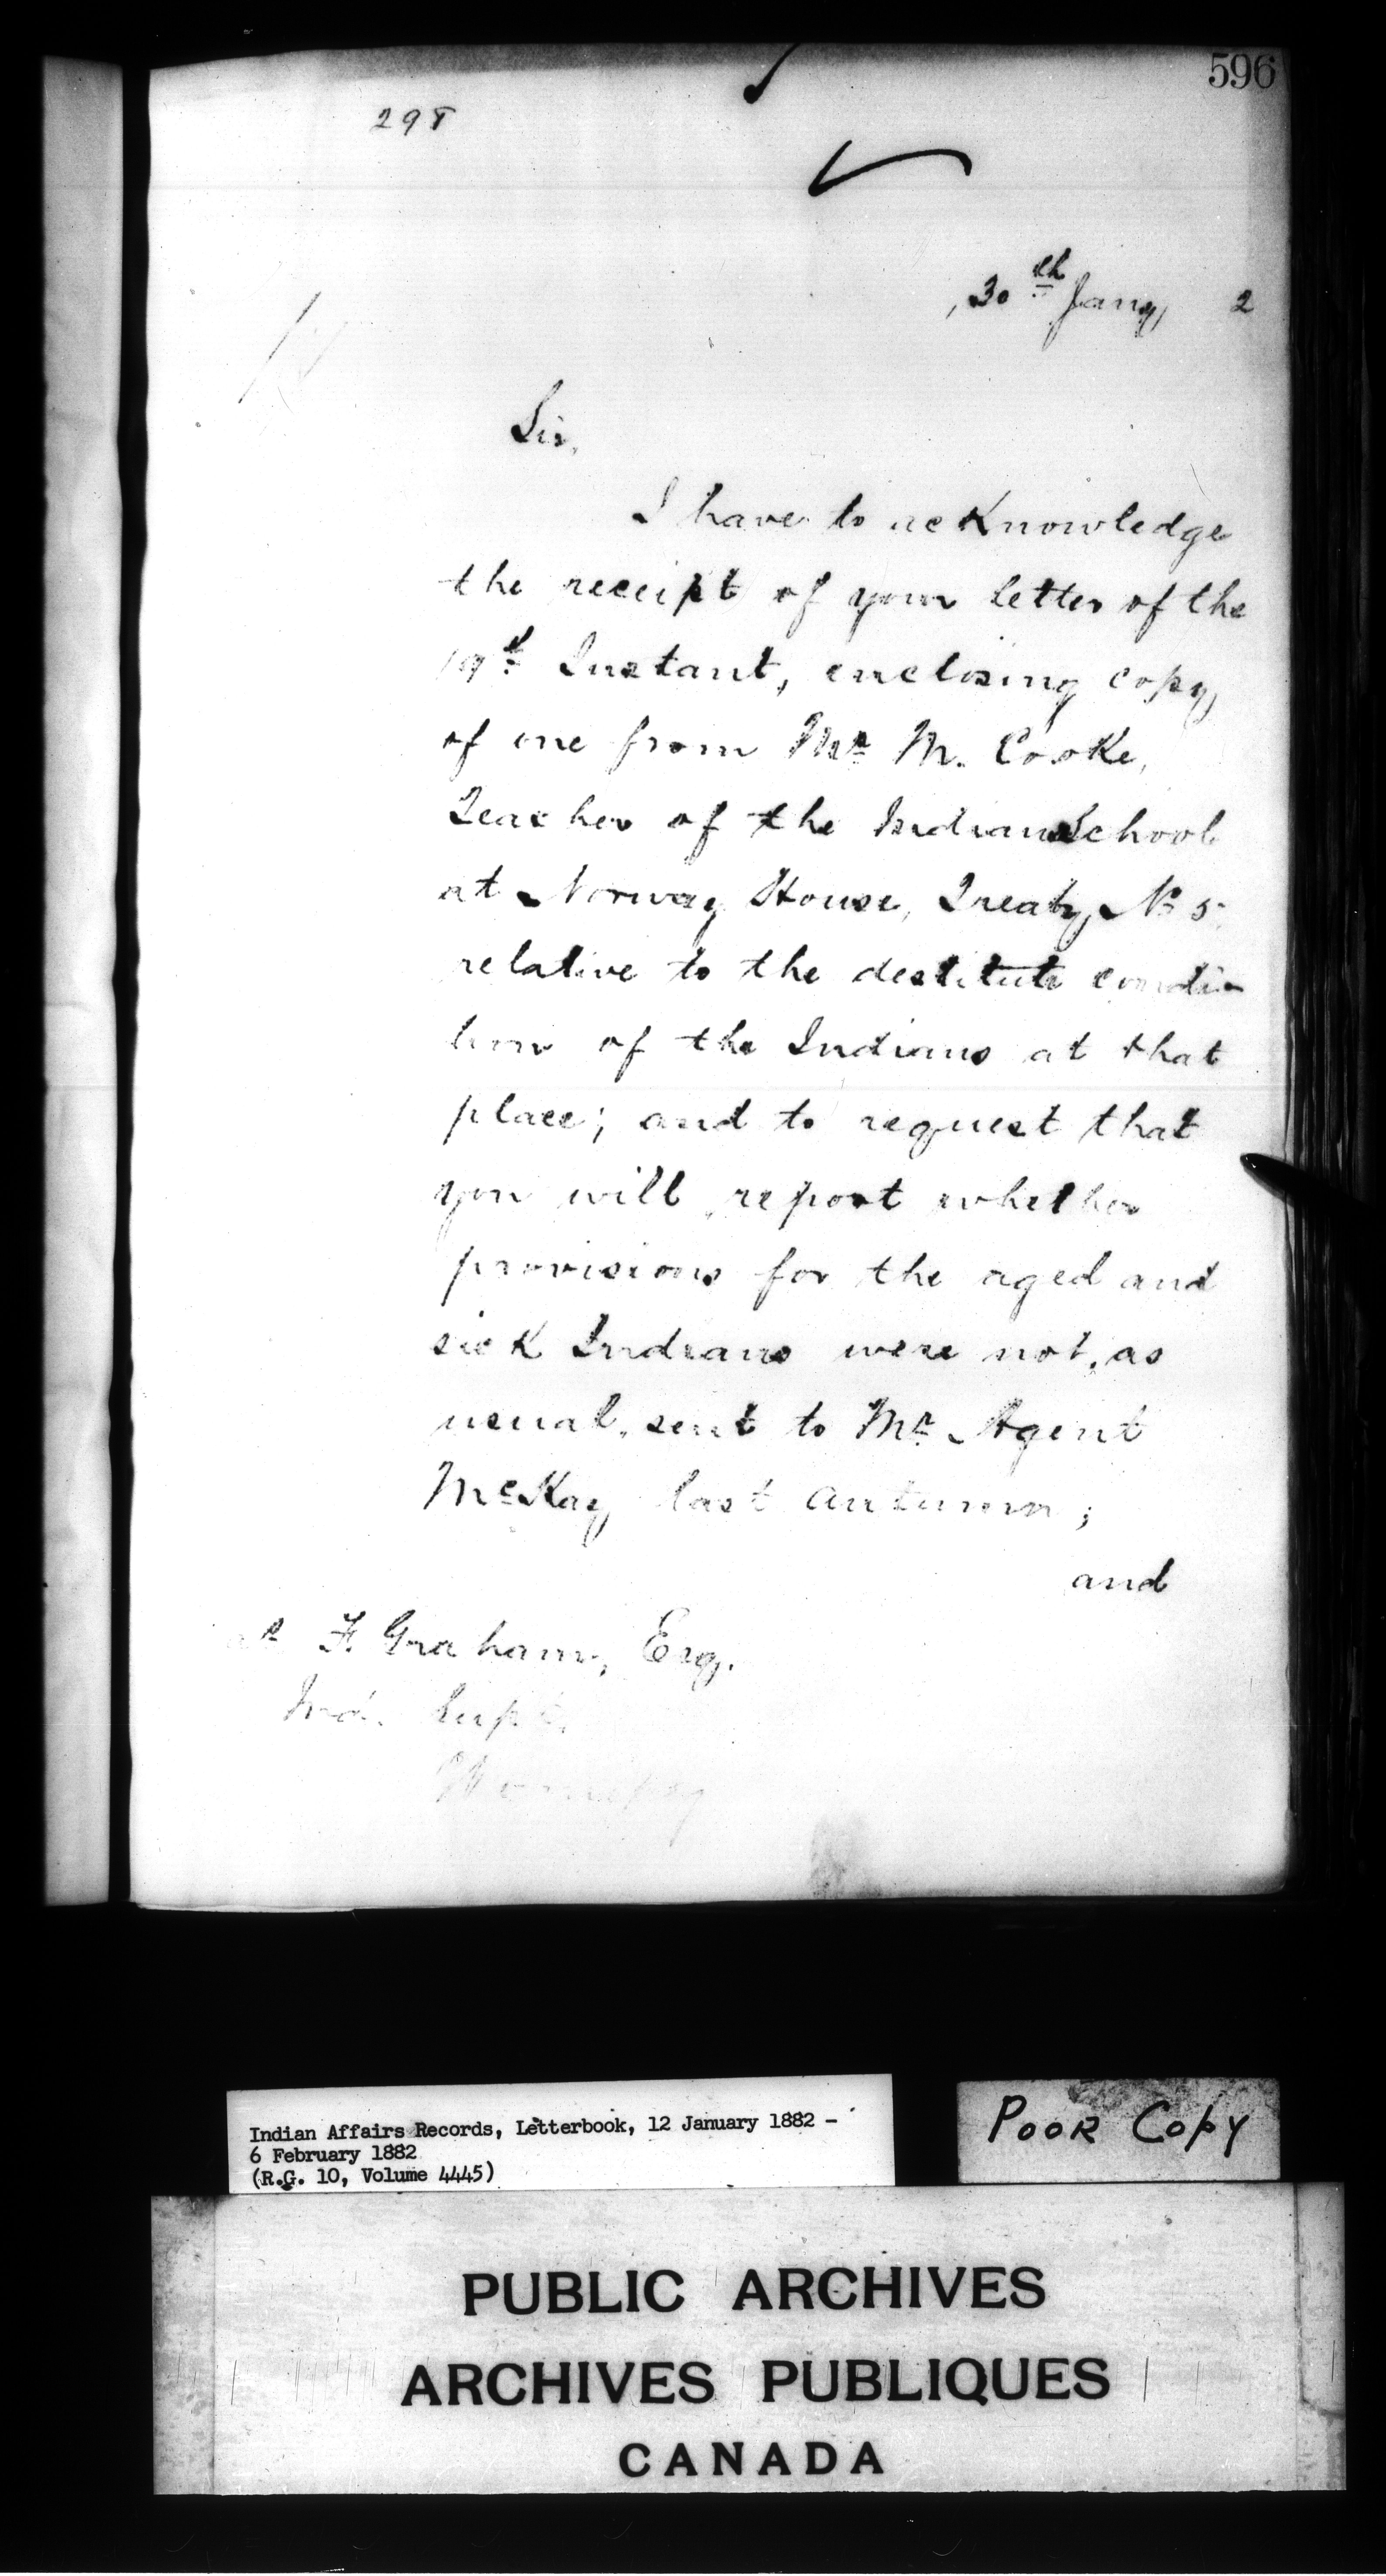 596
298
30th Jany, 2
Sir,
I have to acknowledge
the receipt of your letter of the
19th Instant, enclosing copy
of one from Mr M. Cooke,
Teacher of the Indian School
at Norway House, Treaty No 5.
relative to the destitute condi-
tion of the Indians at that
place; and to request that
you will report whether
provisions for the aged and
sick Indians were not, as
usual, sent to Mr Agent
McKay last autumn;
and
F. Graham, Esq.
Ind. Supt.
Winnipeg
Indian Affairs Records, Letterbook, 12 January 1882 -
6 February 1882
(R.G. 10, Volume 4445)
POOR COPY
PUBLIC ARCHIVES
ARCHIVES PUBLIQUES
CANADA